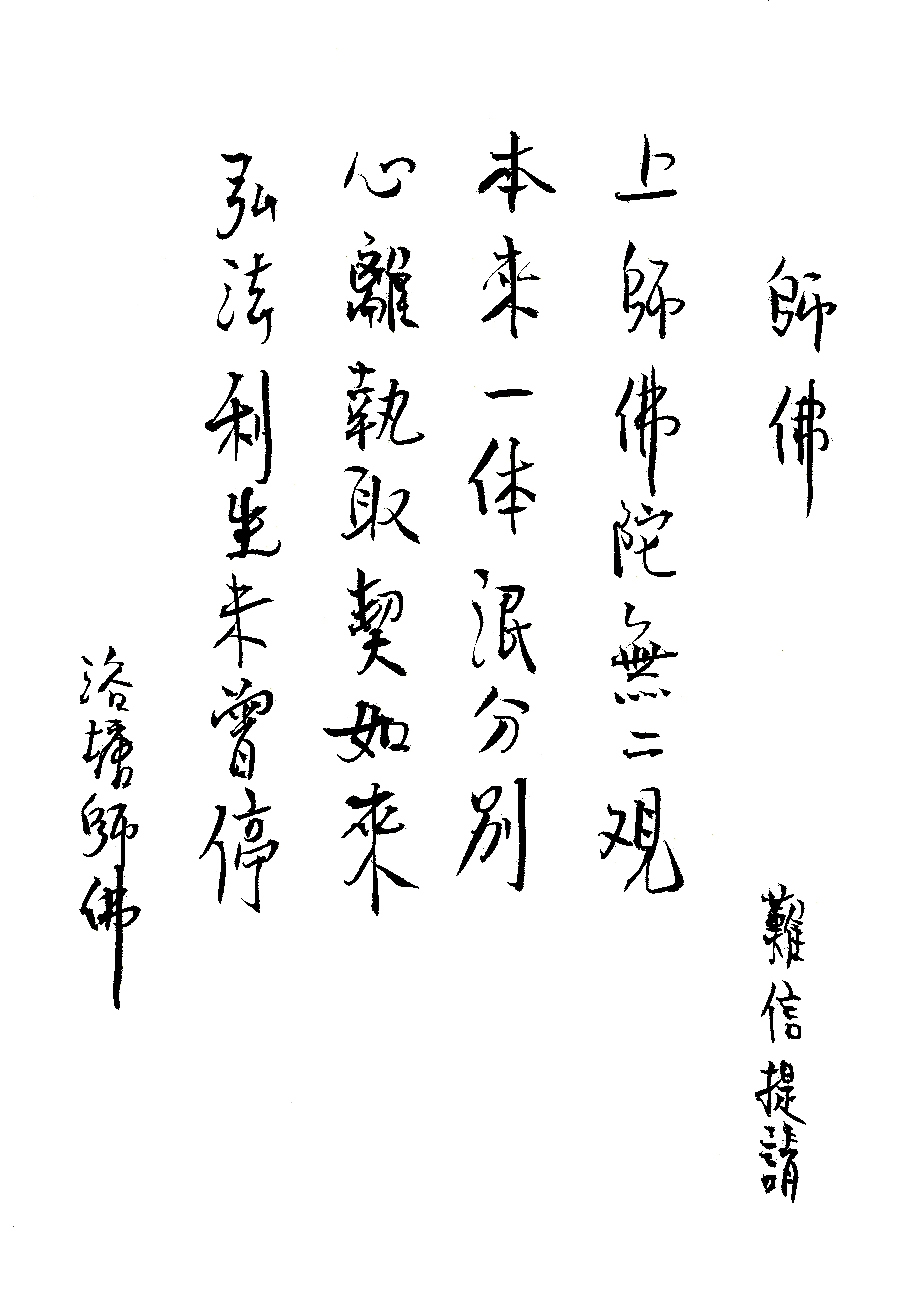 師佛
難信提請
上師佛陀無二观
本來一体泯分别
心離執取契如來
弘法利生未曾停
洛塘師佛